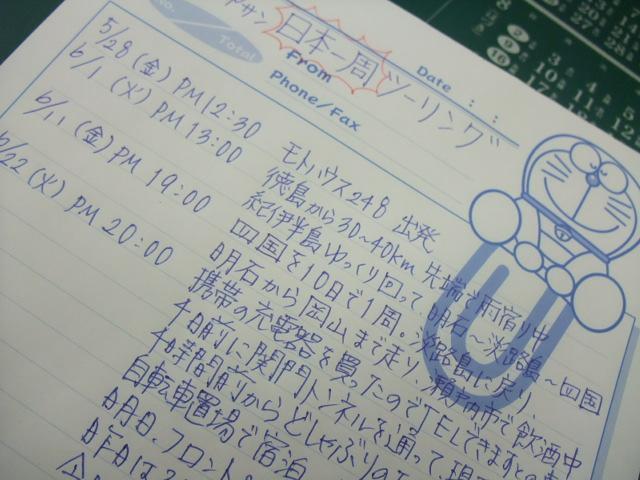 No.
Total
Date : :
From
Phone/Fax
日本一周ツーリング
5/28 (金) PM 12:30 モトハウス248 出発
6/1 (火) PM 13:00 徳島から30~40km 先端で雨宿り中
紀伊半島ゆっくり回って、明石~淡路島~四国
6/11 (金) PM 19:00 四国を10日で1周。淡路島に戻り、
明石から岡山まで走り、瀬戸内市で飲酒中
携帯の充電器を買ったのでTELできますとの
6/22 (火) PM 20:00 4日前に関門トンネルを通って、現
4時間前からどしゃぶりの
自転車置場で宿泊
明日、フロント
昨日は